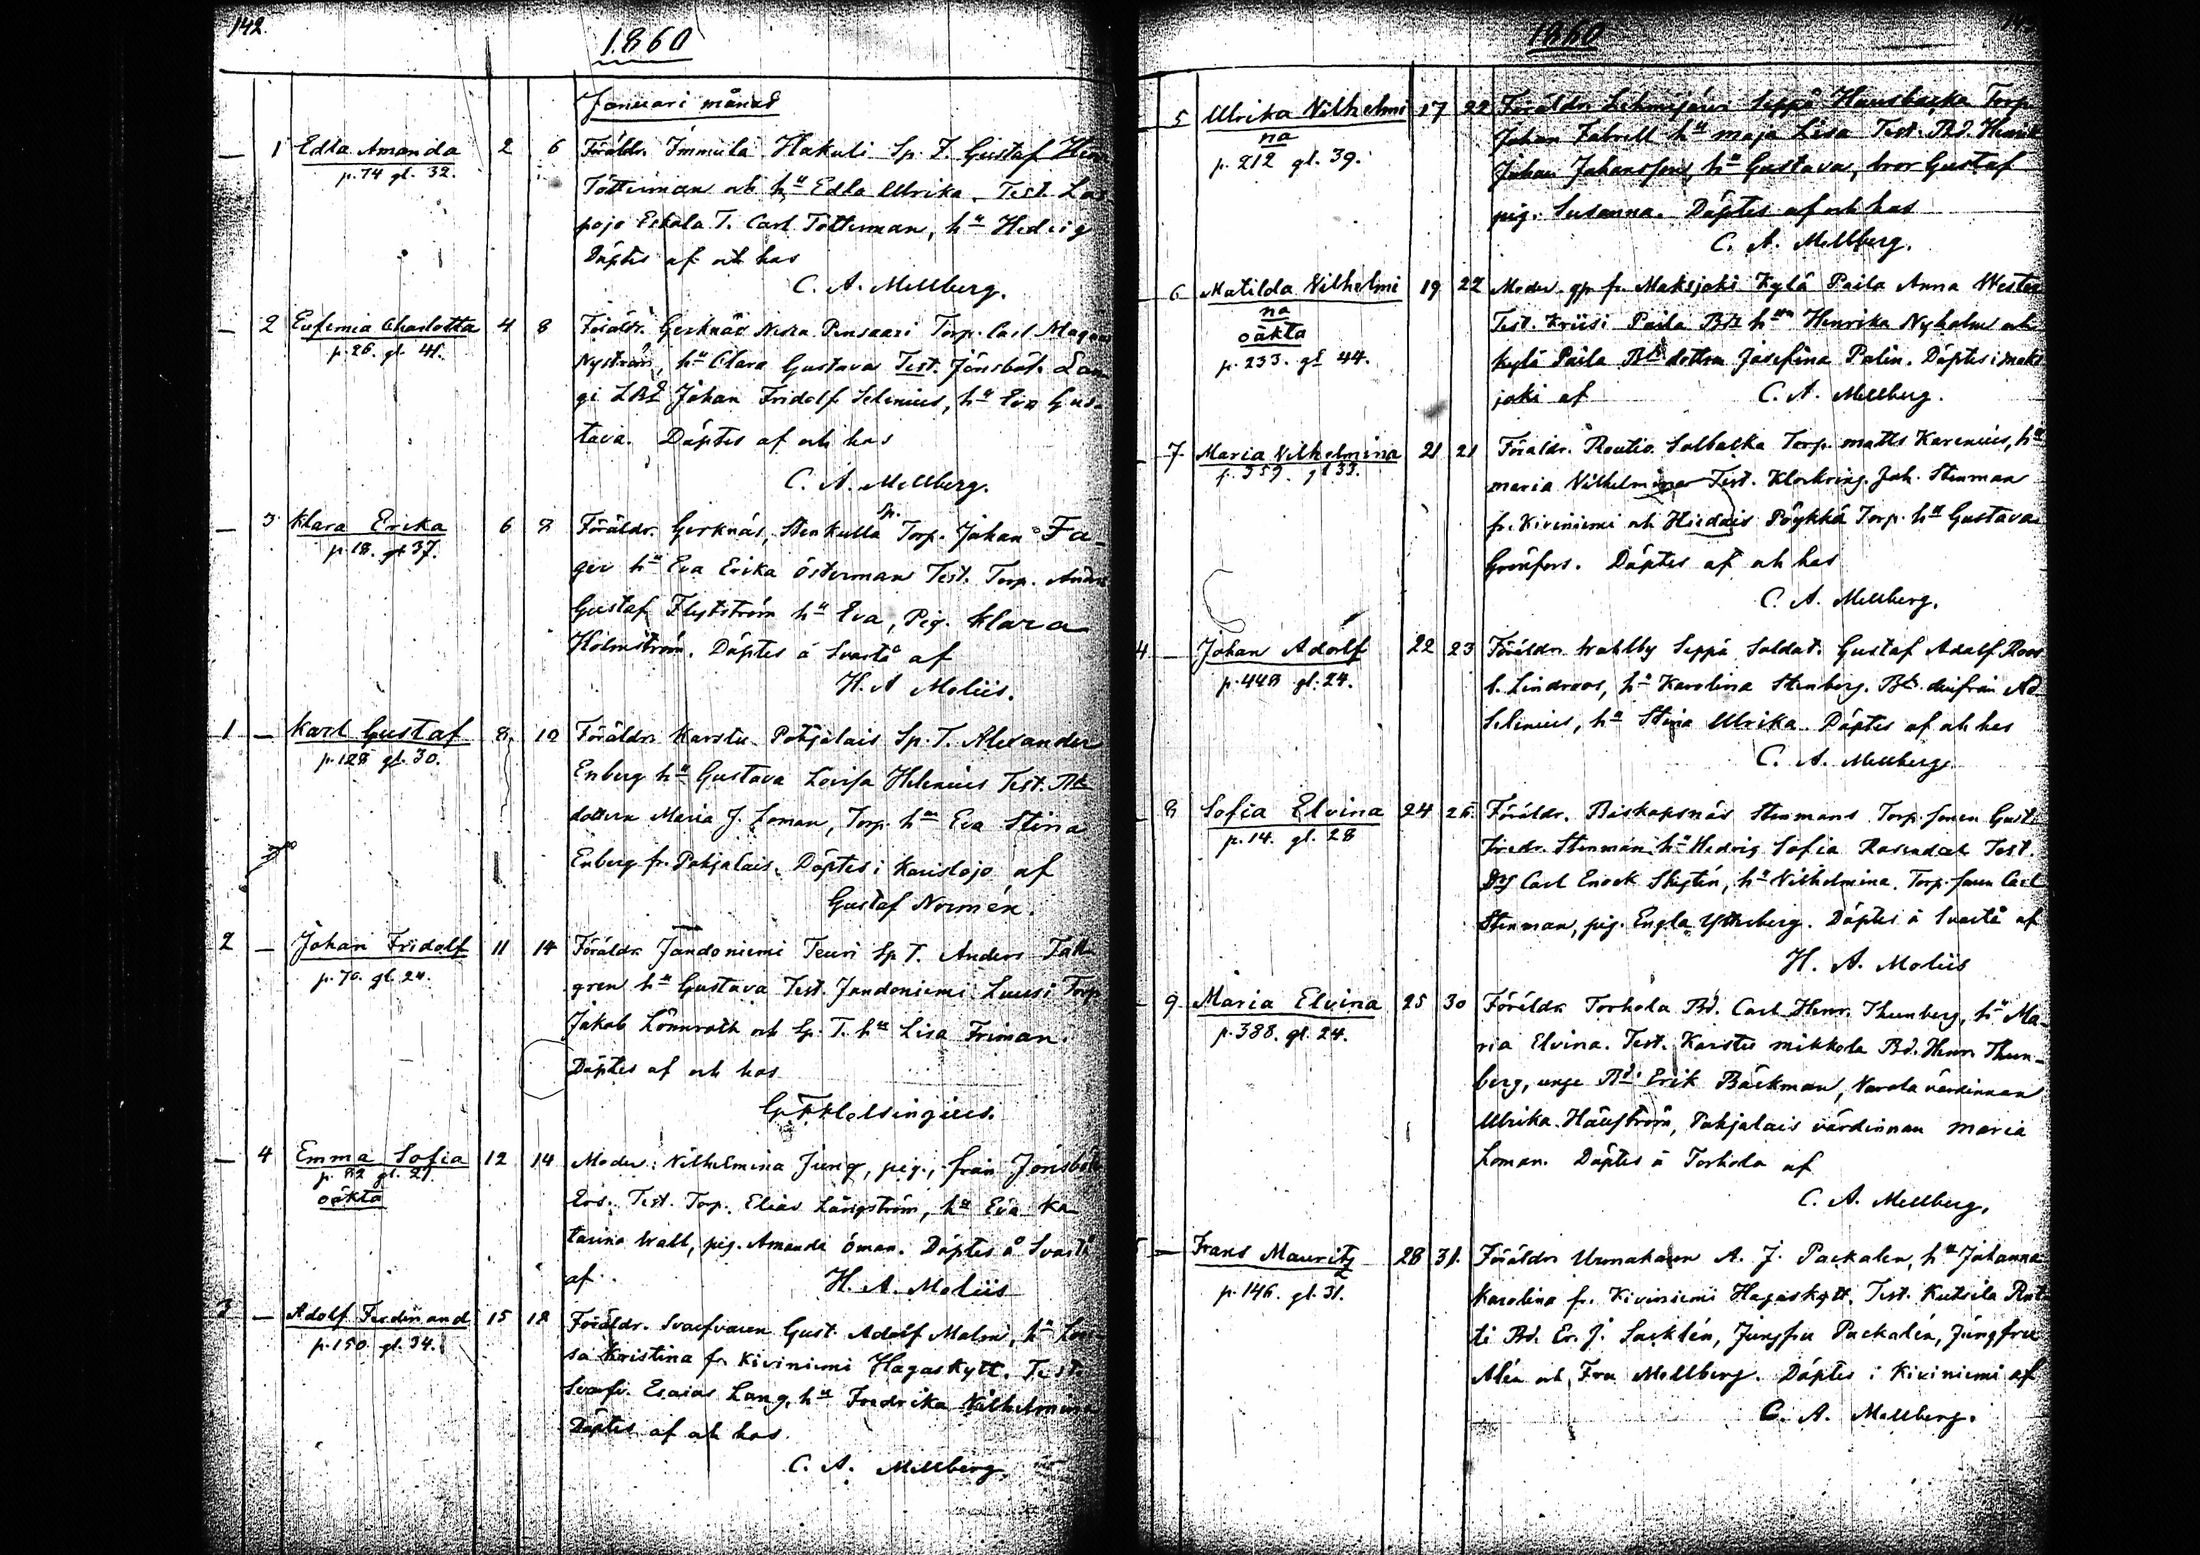 142.
1860
Januari månad
1 Edla Amanda 2 6 Föräldr. Immula Hakuli Sp. T. Gustaf
p. 74 gl. 32. Tötterman och hu Edla Ulrika. Test. Lo
pajo Eskola T. Carl Totterman, hu Hedvig
Döptes af och hos
C. A. Mellberg.
2 Eufemia Charlotta 4 8 Föräldr. Gerknäs Nedra Pensaari Torp. Carl Magnus
p. 26. gl. 41. Nyström, hu Clara Gustava Test. Jönsböl. Lan
gi Johan Fridolf Selenius, hu Eva Gus-
tava. Döptes af och hos
C. A. Mellberg.
3 Klara Erika 6 8 Föräldr. Gerknäs, Stenkulla Sp. Torp. Johan Fa-
p. 18. gl 37. ger hu Eva Erika Österman Test. Torp. Anders
Gustaf Flytström hu Eva, Pig. Klara
Holmström. Döptes å Svartå af
H. A Moliis.
1 — Karl Gustaf 8. 10 Föräldr. Karstu Pohjalais Sp. T. Alexander
p. 128 gl. 30. Enberg hu Gustava Lovisa Helenius Test. Bd
dottern Maria J. Loman, Torp. hu Eva Stina
Enberg fr. Pohjalais. Döptes i Karislojo af
Gustaf Normén.
2 — Johan Fridolf 11 14 Föräldr. Jandoniemi Teuri Sp T. Anders Tall
p. 70. gl. 24. gren hu Gustava Test. Jandoniemi Luusi Torp
Jakob Lönnroth och Sp. T. hu Lisa Friman.
Döptes af och hos
G. F. Helsingius.
— 4 Emma Sofia 12 14 Moder: Vilhelmina Jung, pig., från Jönsböl
p. 82 gl. 21. Ers. Test. Torp. Elias Långström, hu Eva Ka
oäkta tarina Wall, pig. Amanda Öman. Döptes å Svartå
af H. A. Moliis
3 — Adolf Ferdinand 15 18 Föräldr. Svarfvaren Gust. Adolf Malm, hu Lovi
p. 150. gl. 34. sa Kristina fr. Kiviniemi Hagaskytt. Test.
Svarfv. Esaias Lang, hu Fredrika Vilhelmina
Döptes af och hos.
C. A. Mellberg.
1860
5 Ulrika Vilhelmi 17 22 Föräldr. Lehmijärvi Seppä Hausbacka Torp.
na Johan Fabrell hu Maja Lisa Test. Bd. Henrik
p. 212 gl. 39. Johan Johansson, hu Gustava, bror Gustaf
pig. Susanna. Döptes af och hos
C. A. Mellberg.
6 Matilda Vilhelmi 19 22 Moder gp. fr. Maksjoki Kylä Paila Anna Wester
na Test. Kriisi Paila Bd. hu Henrika Nyholm och
oäkta Kylä Paila Bd. dottren Josefina Palin. Döptes i Maks
p. 233. gl 44. joki af C. A. Mellberg.
7 Maria Vilhelmina 21 21 Föräldr. Routio Solbacka Torp. Matts Karenius, hu
p. 359. gl 33. Maria Vilhelmina Test. Klockring. Joh. Stenman
fr. Kiviniemi och Hiidais Pöykkä Torp. hu Gustava
Grönfors. Döptes af och hos
C. A. Mellberg.
4 — Johan Adolf 22 23 Föräldr. Wahlby Seppä Soldat. Gustaf Adolf Roos
p. 448 gl. 24. l. Lindroos, hu Karolina Stenberg. Bd. Ad
Selenius, hu Stina Ulrika. Döptes af och hos
C. A. Mellberg.
8 Sofia Elvina 24 26. Föräldr. Biskopsnäs Stenmans Torp. sonen Gust.
p. 14. gl. 28 Fredr. Stenman hu Hedvig Sofia Rosendal Test.
Carl Enock Skytén, hu Vilhelmina. Torp. sonen Carl
Stenman, pig. Engla Ytterberg. Döptes å Svartå af
H. A. Moliis
9 Maria Elvina 25 30 Föräldr. Torhola Bd. Carl Henr. Thunberg, hu Ma-
p. 388. gl. 24. ria Elvina. Test. Karstu Mikkola Bd. Henr. Thun-
berg, unge Bd. Erik Bäckman, Varola värdinnan
Ulrika Häggström, Pohjalais värdinnan Maria
Loman. Döptes å Torhola af
C. A. Mellberg,
5 — Frans Mauritz 28 31. Föräldr. Urmakaren A. J. Packalen, hu Johanna
p. 146. gl. 31. Karolina fr. Kiviniemi Hagaskytt. Test. Kutsila Ant
ti Bd. Er. J. Sacklén, Jungfru Packalén, Jungfru
Alén och Fru Mellberg. Döptes i Kiviniemi af
C. A. Mellberg.